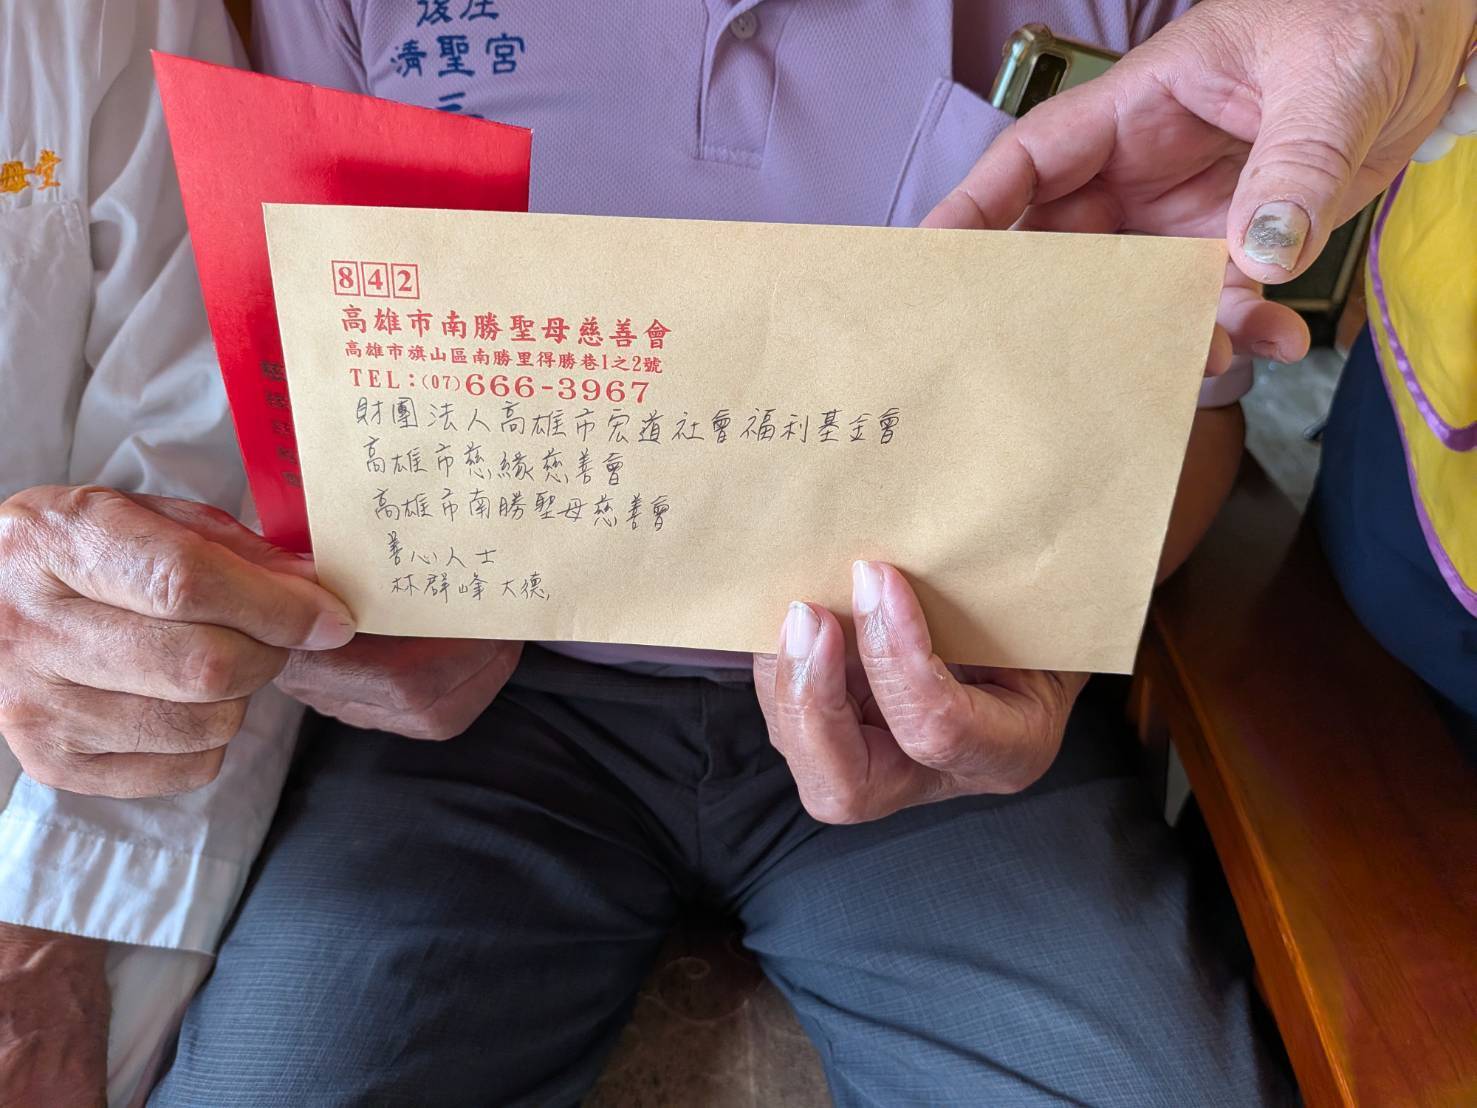 後庄
清聖宮
母堂
842
高雄市南勝聖母慈善會
高雄市旗山區南勝里得勝巷1之2號
TEL：(07)666-3967
財團法人高雄市宏道社會福利基金會
高雄市慈緣慈善會
高雄市南勝聖母慈善會
善心人士
林群峰 大德,